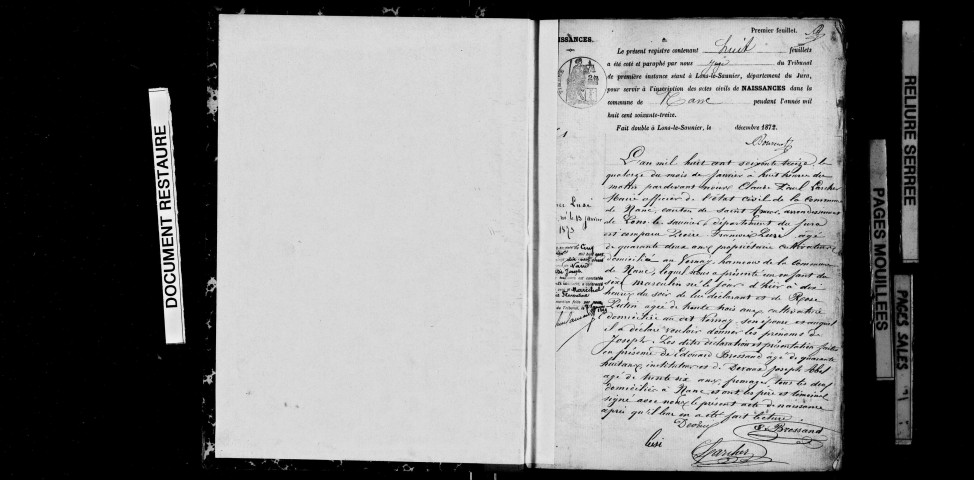 DOCUMENT RESTAURE
Premier feuillet.
NAISSANCES.
Le présent registre contenant huit feuillets
a été coté et paraphé par nous juge du Tribunal
de première instance séant à Lons-le-Saunier, département du Jura,
pour servir à l'inscription des actes civils de NAISSANCES dans la
commune de Nanc pendant l'année mil
huit cent soixante-treize.
Fait double à Lons-le-Saunier, le décembre 1872.
L'an mil huit cent soixante treize, le
quatorze du mois de Janvier à huit heures du
matin pardevant nous Claude Paul
Maire officier de l'état civil de la commune
de Nanc, canton de Saint Amour, arrondissement
de Lons-le-saunier, département du Jura
est comparu François Lusi âgé
de quarante deux ans propriétaire cultivateur
domicilié au Vernay hameau de la commune
de Nanc, lequel nous a présenté un enfant du
sexe masculin né le jour d'hier à dix
heures du soir de lui déclarant et de Rose
Putin âgée de trente trois ans cultivatrice
domiciliée au dit Vernay son épouse et auquel
il a déclaré vouloir donner les prénoms de
Joseph. Les dites déclaration et présentation faites
en présence de Edouard Brossand âgé de quarante
huit ans, instituteur et de Joseph
âgé de trente six ans fromager, tous les deux
domiciliés à Nanc et ont les père et témoins
signé avec nous le présent acte de naissance
après qu'il leur en a été fait lecture.
E. Brossand
Lusi
Lusi
né le 13 janvier
1873
RELIURE SERREE
PAGES MOUILLEES
PAGES SALES